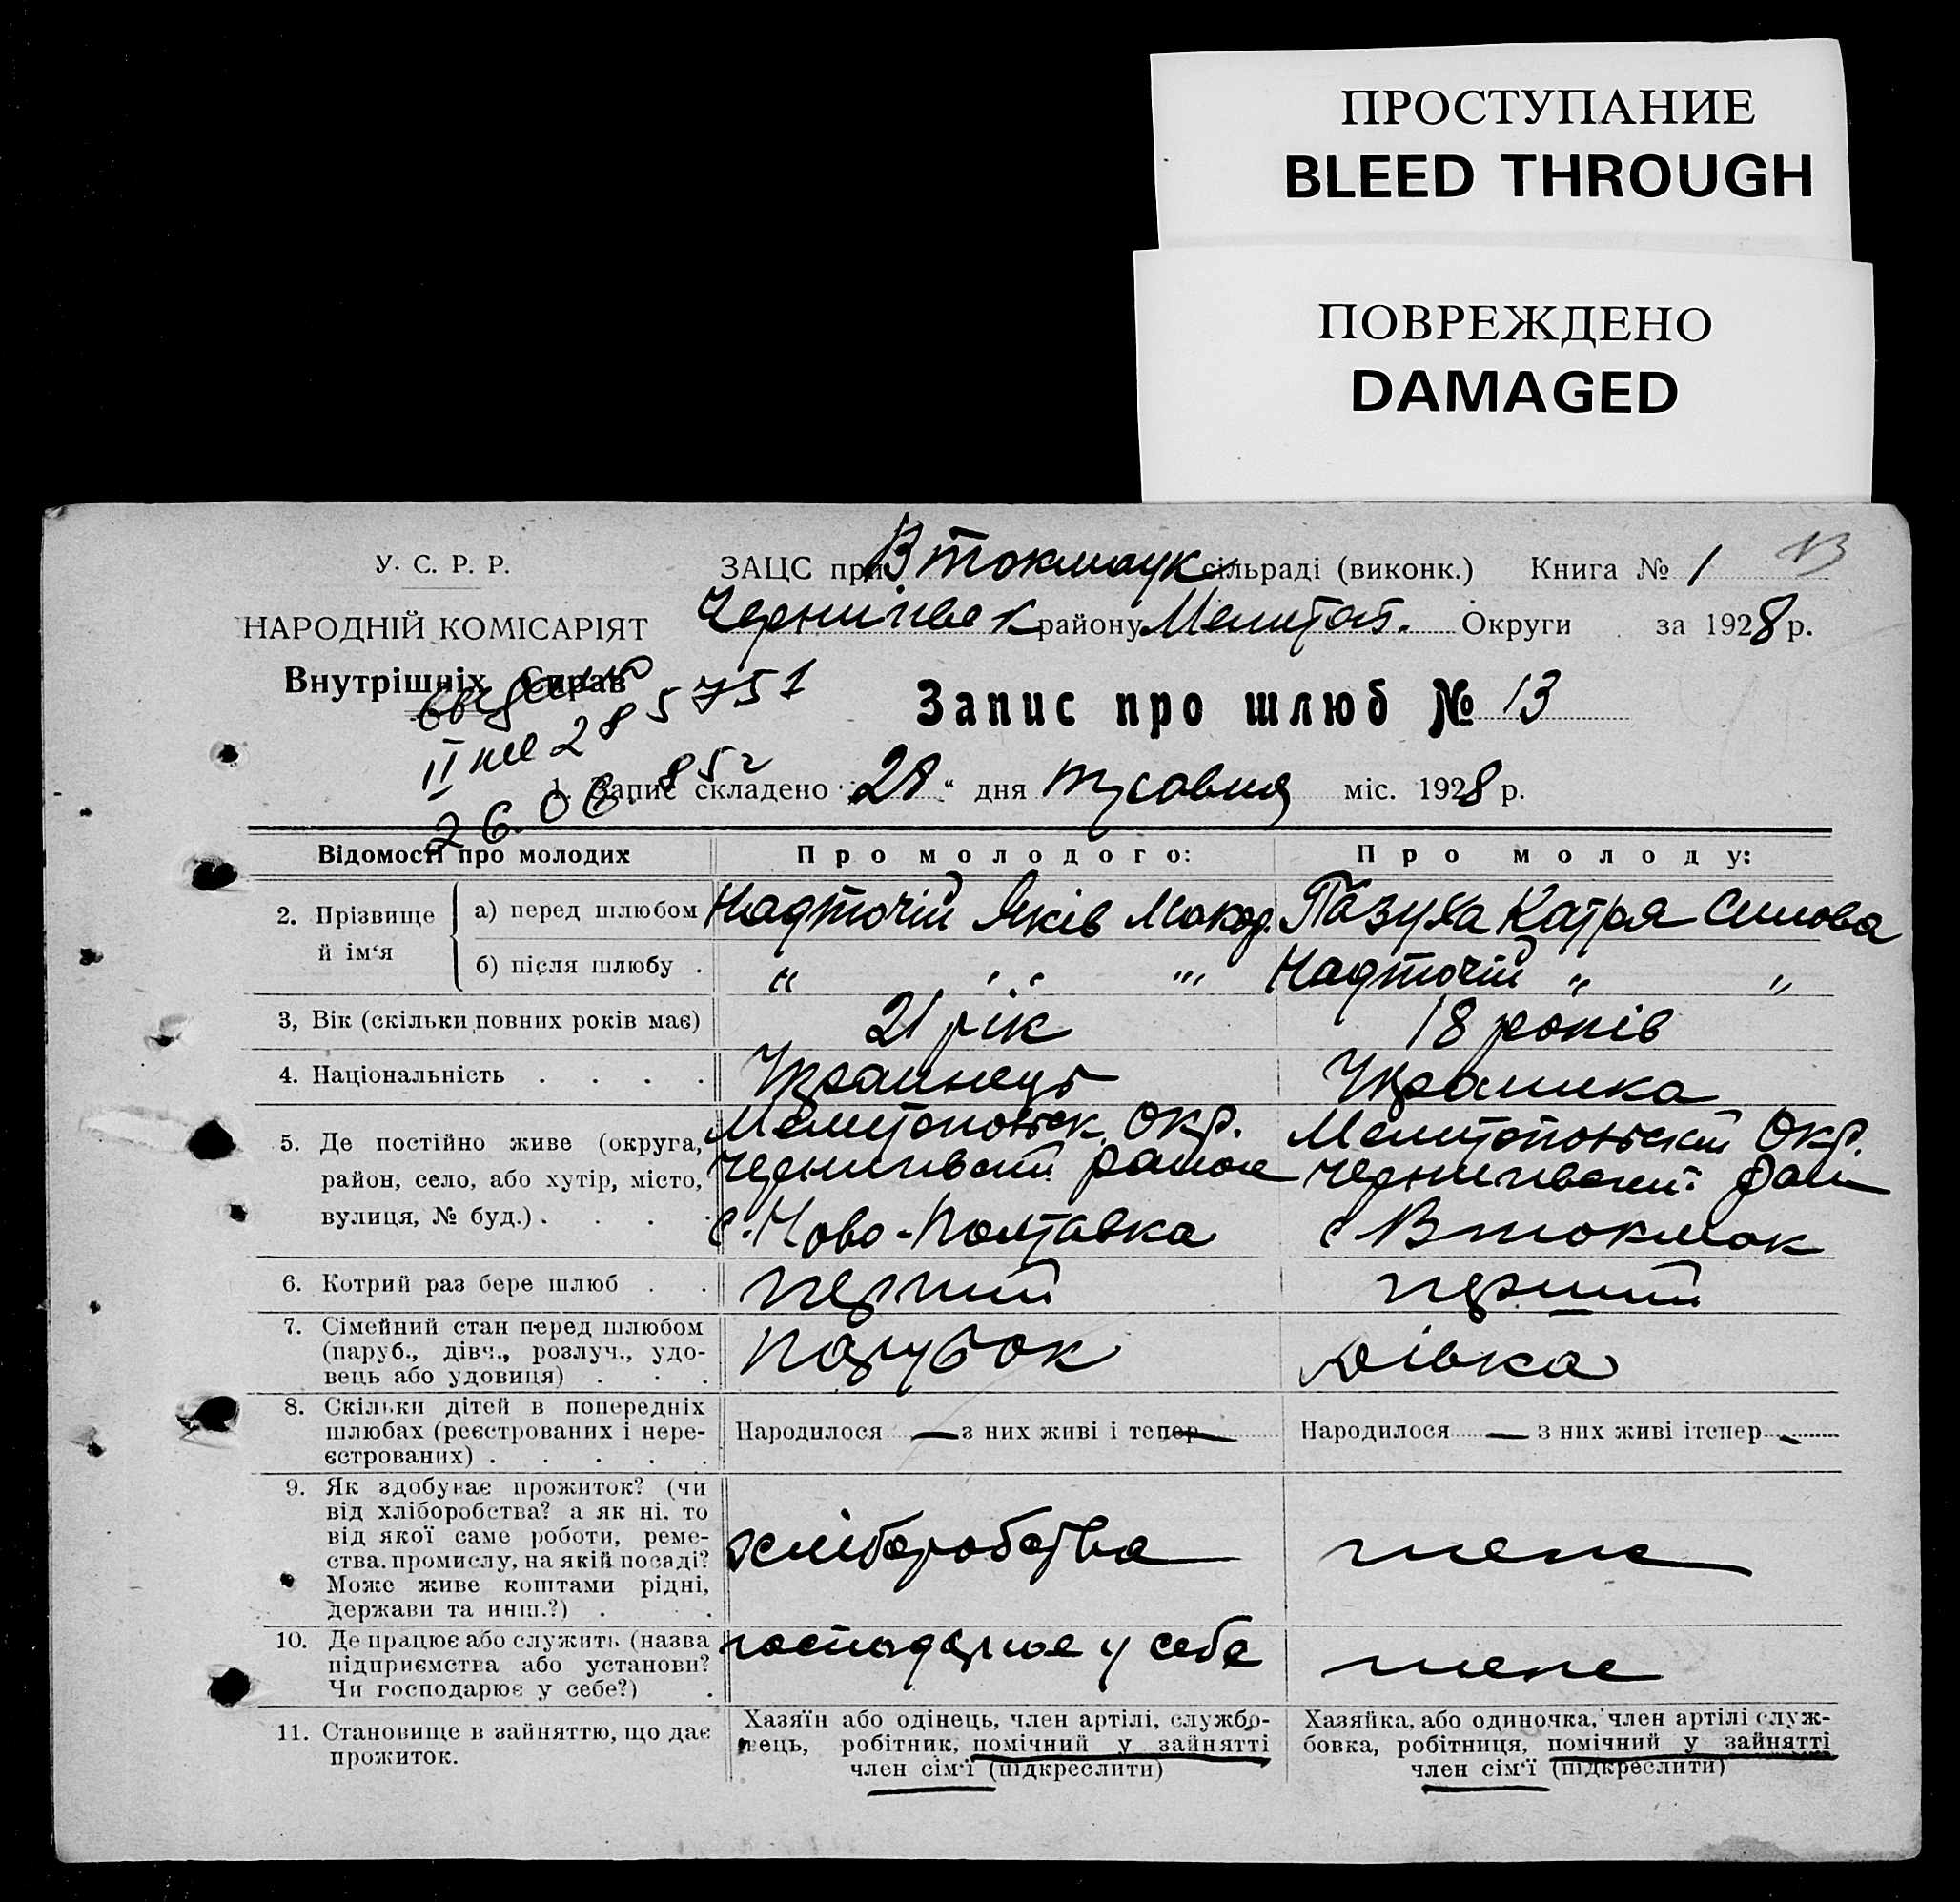 ПРОСТУПАНИЕ
BLEED THROUGH
ПОВРЕЖДЕНО
DAMAGED
У. С. Р. Р.
НАРОДНІЙ КОМІСАРІЯТ
Внутрішніх Справ
ЗАЦС при В Токмаук сільраді (виконк.) Книга № 1 13
Чернигівск району Мелитоп. Округи за 1928 р.
II 285751
26.06.85г
Запис про шлюб № 13
1. Запис складено „28“ дня травня міс. 1928 р.
Відомості про молодих Про молодого: Про молоду:
2. Прізвище й ім‘я
а) перед шлюбом Надточій Яків Макар. Пазуха Катря Силова
б) після шлюбу . „ „ „ Надточій „ „
3, Вік (скільки повних років має) 21 рік 18 років
4. Національність . . . . Українець Українка
5. Де постійно живе (округа, район, село, або хутір, місто, вулиця, № буд.) . . . .
Мелитопольск. Окр.
Чернигівский район
с. Ново-Полтавка
Мелитопольский Окр.
Чернигівский рай
с Втокмак
6. Котрий раз бере шлюб . . перший перший
7. Сімейний стан перед шлюбом
(паруб., дівч., розлуч., удо-
вець або удовиця) . . . парубок дівка
8. Скільки дітей в попередніх
шлюбах (реєстрованих і нере-
єстрованих) . . . . .
Народилося — з них живі і тепер —
Народилося — з них живі ітепер —
9. Як здобуває прожиток? (чи
від хліборобства? а як ні, то
від якої саме роботи, реме-
ства, промислу, на якій посаді?
Може живе коштами рідні,
держави та инш.?) . .
хліборобства теже
10. Де працює або служить (назва
підприємства або установи?
Чи господарює у себе?) .
господарює у себе теже
11. Становище в зайняттю, що дає
прожиток.
Хазяїн або одінець, член артілі, службо-
вець, робітник, помічний у зайнятті
член сім‘ї (підкреслити)
Хазяйка, або одиночка, член артілі служ-
бовка, робітниця, помічний у зайнятті
член сім‘ї (підкреслити)